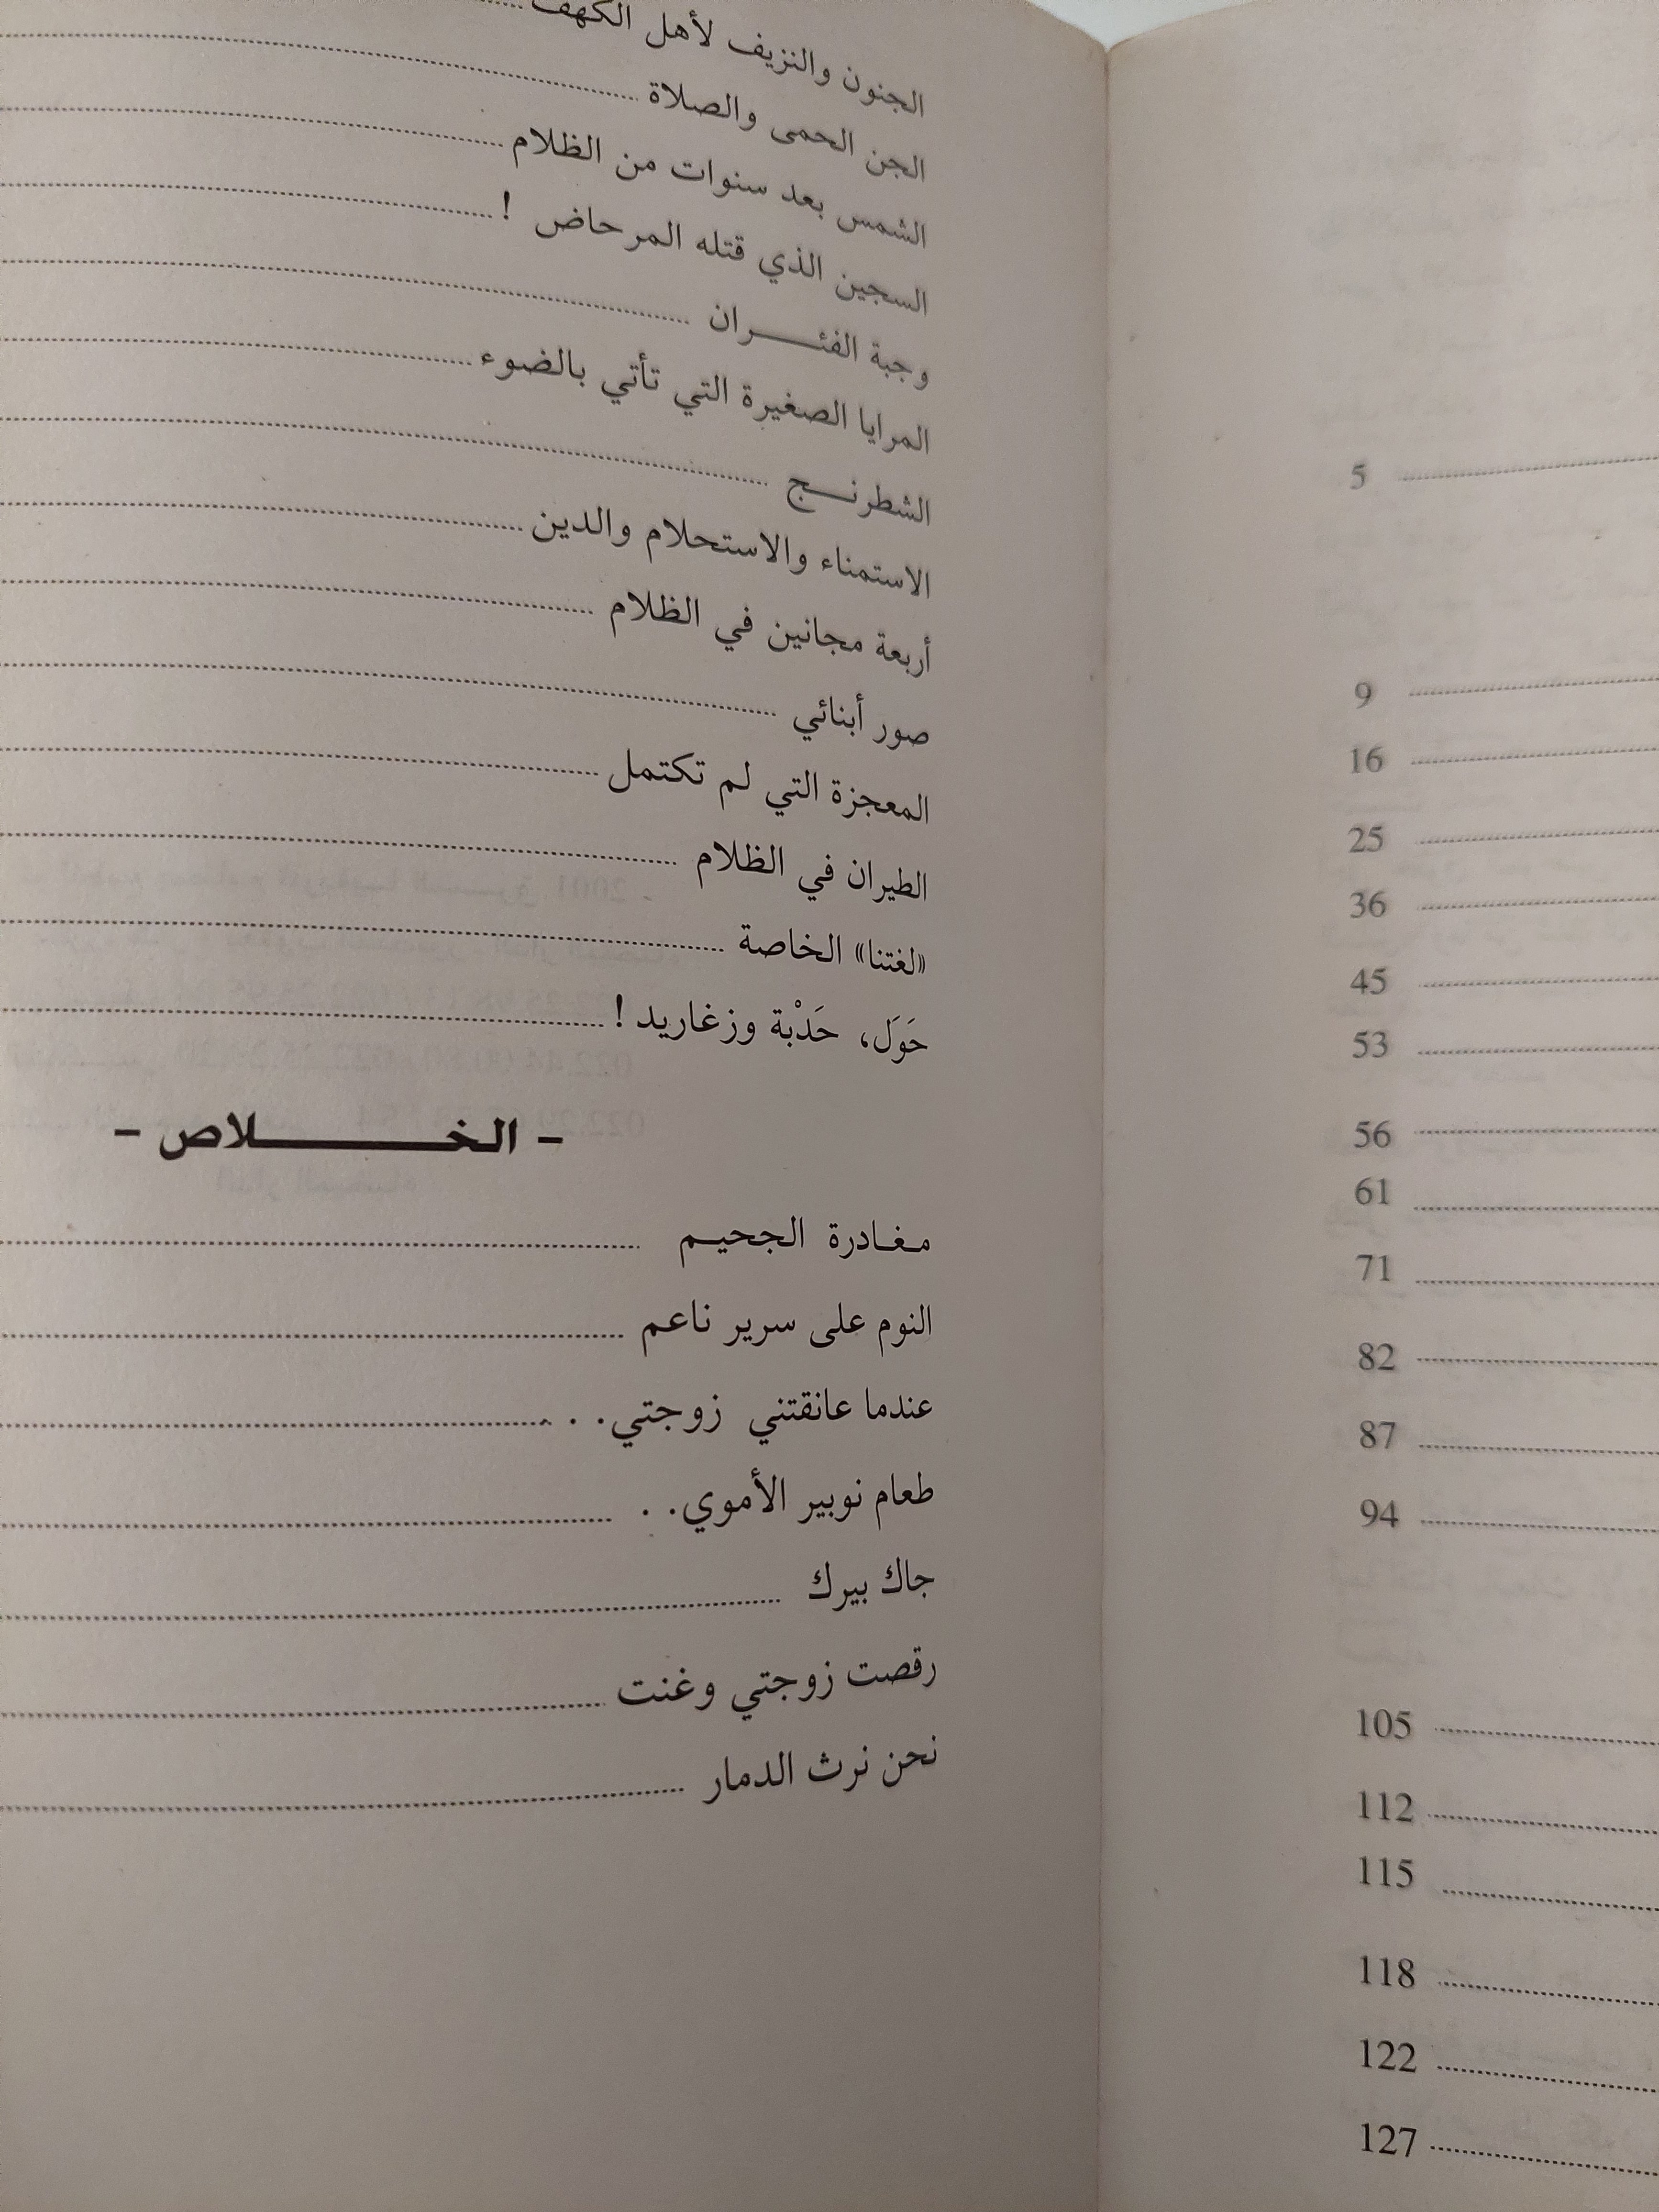 5
9
16
25
36
45
53
56
61
71
82
87
94
105
112
115
118
122
127
الجنون والنزيف لأهل الكهف
الجن الحمى والصلاة
الشمس بعد سنوات من الظلام
السجين الذي قتله المرحاض !
وجبة الفئـــران
المرايا الصغيرة التي تأتي بالضوء
الشطرنـج
الاستمناء والاستحلام والدين
أربعة مجانين في الظلام
صور أبنائي
المعجزة التي لم تكتمل
الطيران في الظلام
«لغتنا» الخاصة
حَوَل، حَدْبة وزغاريد !
- الخـــــــلاص -
مـغـادرة الجحيـم
النوم على سرير ناعم
عندما عانقتني زوجتي. . .
طعام نوبير الأموي. .
جاك بيرك
رقصت زوجتي وغنت
نحن نرث الدمار